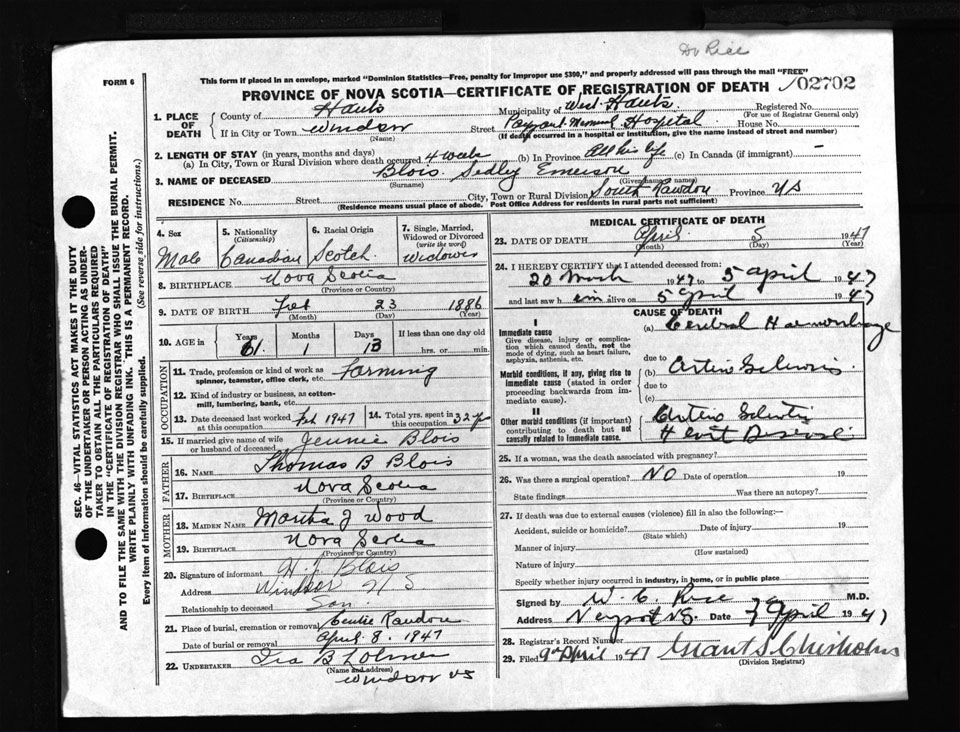 Dr Rice
FORM 6
This form if placed in an envelope, marked "Dominion Statistics—Free, penalty for improper use $300," and properly addressed will pass through the mail "FREE"
PROVINCE OF NOVA SCOTIA—CERTIFICATE OF REGISTRATION OF DEATH
02702
1. PLACE OF DEATH
County of Hants Municipality of West Hants Registered No.
(For use of Registrar General only)
If in City or Town Windsor Street Payzant Memorial Hospital House No.
(Name) (If death occurred in a hospital or institution, give the name instead of street and number)
2. LENGTH OF STAY (in years, months and days)
(a) In City, Town or Rural Division where death occurred 4 weeks (b) In Province All his life (c) In Canada (if immigrant) —
3. NAME OF DECEASED Blois Sedley Emerson
(Surname) (Given or names)
RESIDENCE No. Street City, Town or Rural Division South Rawdon Province NS
(Residence means usual place of abode. Post Office Address for residents in rural parts not sufficient)
4. Sex Male
5. Nationality (Citizenship) Canadian
6. Racial Origin Scotch
7. Single, Married, Widowed or Divorced (write the word) Widower
8. BIRTHPLACE Nova Scotia
(Province or Country)
9. DATE OF BIRTH Feb 23 1886
(Month) (Day) (Year)
10. AGE in Years 61 Months 1 Days 13 If less than one day old
hrs. or min.
OCCUPATION
11. Trade, profession or kind of work as spinner, teamster, office clerk, etc. Farming
12. Kind of industry or business, as cotton-mill, lumbering, bank, etc.
13. Date deceased last worked at this occupation Feb 1947
14. Total yrs. spent in this occupation 32
15. If married give name of wife or husband of deceased Jennie Blois
FATHER
16. NAME Thomas B Blois
17. BIRTHPLACE Nova Scotia
(Province or Country)
MOTHER
18. MAIDEN NAME Martha J Wood
19. BIRTHPLACE Nova Scotia
(Province or Country)
20. Signature of informant H. J. Blois
Address Windsor N S
Relationship to deceased Son
21. Place of burial, cremation or removal Centre Rawdon
Date of burial or removal April 8. 1947
22. UNDERTAKER Ira B
(Name and address)
Windsor NS
MEDICAL CERTIFICATE OF DEATH
23. DATE OF DEATH April 5 1947
(Month) (Day) (Year)
24. I HEREBY CERTIFY that I attended deceased from:
20 March 1947 to 5 April 1947
and last saw him alive on 5 April 1947
CAUSE OF DEATH
I
Immediate cause
Give disease, injury or complication which caused death, not the mode of dying, such as heart failure, asphyxia, asthenia, etc.
(a) Cerebral Haemorrhage
due to
Morbid conditions, if any, giving rise to immediate cause (stated in order proceeding backwards from immediate cause).
(b)
due to
(c)
II
Other morbid conditions (if important) contributing to death but not causally related to immediate cause.
Heart Disease
25. If a woman, was the death associated with pregnancy?
26. Was there a surgical operation? NO Date of operation 19
State findings Was there an autopsy?
27. If death was due to external causes (violence) fill in also the following:—
Accident, suicide or homicide? Date of injury 19
(State which)
Manner of injury
(How sustained)
Nature of injury
Specify whether injury occurred in industry, in home, or in public place
Signed by W. C. Rice M.D.
Address Newport N.S. Date 7 April 1947
28. Registrar's Record Number
29. Filed 9th April 1947 Grant S Chisholm
(Division Registrar)
SEC. 46—VITAL STATISTICS ACT MAKES IT THE DUTY
OF THE UNDERTAKER OR PERSON ACTING AS UNDER-
TAKER TO OBTAIN ALL THE PARTICULARS REQUIRED
IN THE "CERTIFICATE OF REGISTRATION OF DEATH"
AND TO FILE THE SAME WITH THE DIVISION REGISTRAR WHO SHALL ISSUE THE BURIAL PERMIT.
WRITE PLAINLY WITH UNFADING INK. THIS IS A PERMANENT RECORD.
Every item of Information should be carefully supplied. (See reverse side for instructions.)